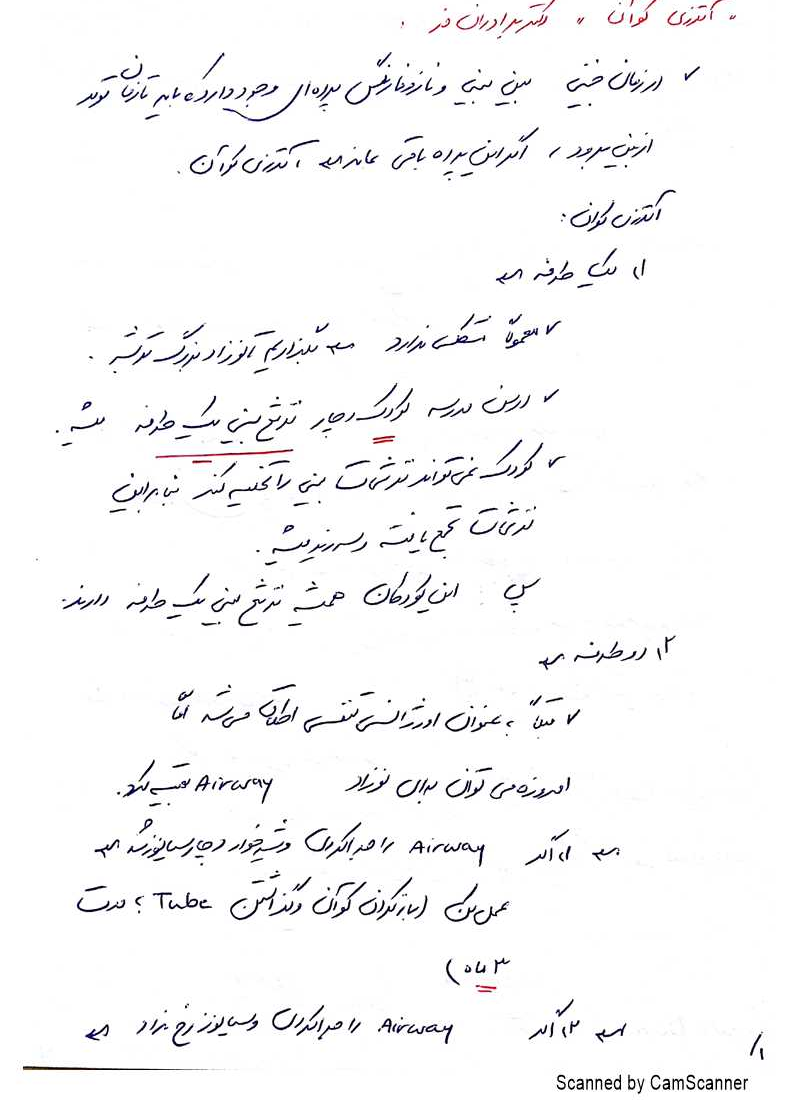 « آترزی کوآن » دکتر برادران فر .
✓ در زمان جنینی بین بینی و نازوفارنکس پرده‌ای وجود دارد که باید تا زمان تولد
از بین برود ، اگر این پرده باقی بماند ← آترزی کوآن .
آترزی کوآن :
۱) یک طرفه ←
✓ معمولاً مشکلی ندارد ← میگذاریم تا نوزاد بزرگ تر شه .
✓ در سن مدرسه کودک دچار ترشح بینی یک طرفه میشه .
✓ کودک نمی تواند ترشحات بینی را تخلیه کند بنابراین
ترشحات تجمع یافته و سرریز میشه .
پس : این کودکان همیشه ترشح بینی یک طرفه دارند .
۲) دو طرفه ←
✓ قبلاً به عنوان اورژانس تنفسی اطلاق می شد امّا
امروزه می توان برای نوزاد Airway تعبیه کرد .
← ۱) اگر Airway را جدا کردن و شیرخوار دچار سیانوز شد ←
عمل میکنن (باز کردن کوآن و گذاشتن Tube به مدت
۳ ماه)
← ۲) اگر Airway را جدا کردن و سیانوز رخ نداد ←
۱/
Scanned by CamScanner